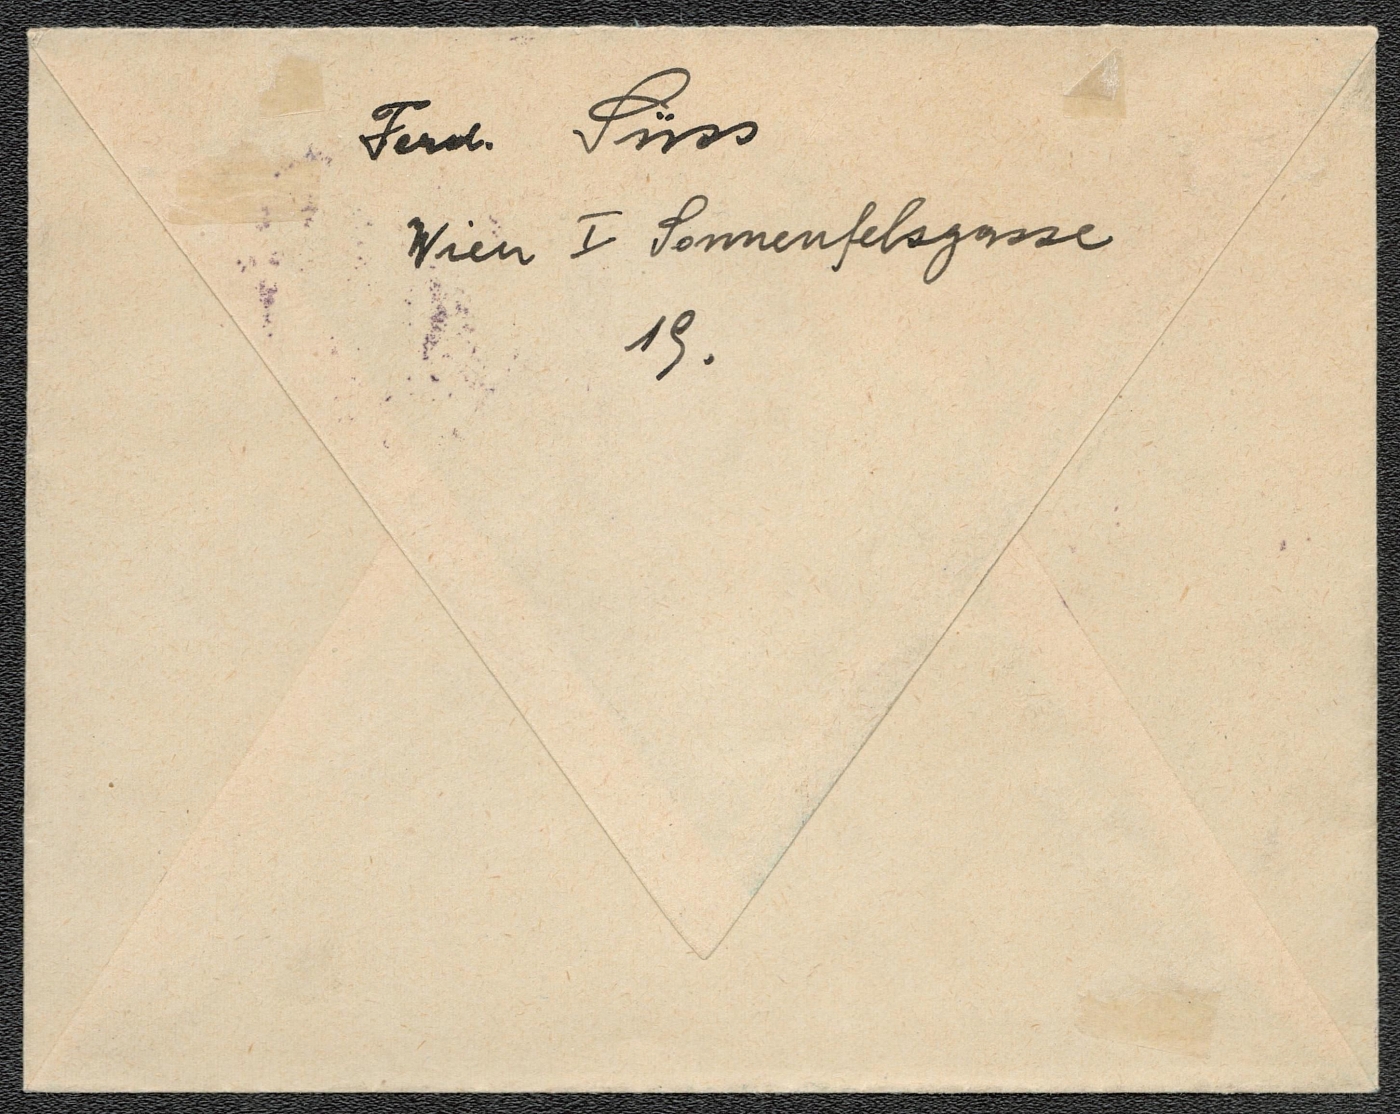 Ferd. Süss
Wien I Sonnenfelsgasse
19.